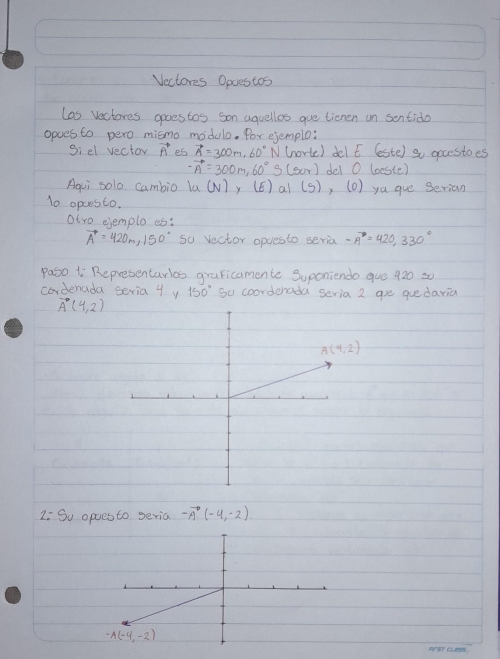 Vectores Opuestos
Los vectores opuestos son aquellos que tienen un sentido
opuesto pero mismo modulo. Por ejemplo:
Si el vector A⃗ es A⃗=300m, 60° N (norte) del E (este) su opuesto es
-A⃗=300m, 60° S (sur) del O (oeste)
Aqui solo cambio la (N) y (E) al (S), (O) ya que serian
lo opuesto.
Otro ejemplo es:
A⃗=420m, 150° su vector opuesto seria -A⃗=420, 330°
Paso 1: Representarlos graficamente suponiendo que 420 su
cordenada seria 4 y 150° su coordenada seria 2 que quedaria
A⃗(4,2)
A(4,2)
2:- Su opuesto seria -A⃗(-4,-2)
-A(-4,-2)
FIRST CLASS